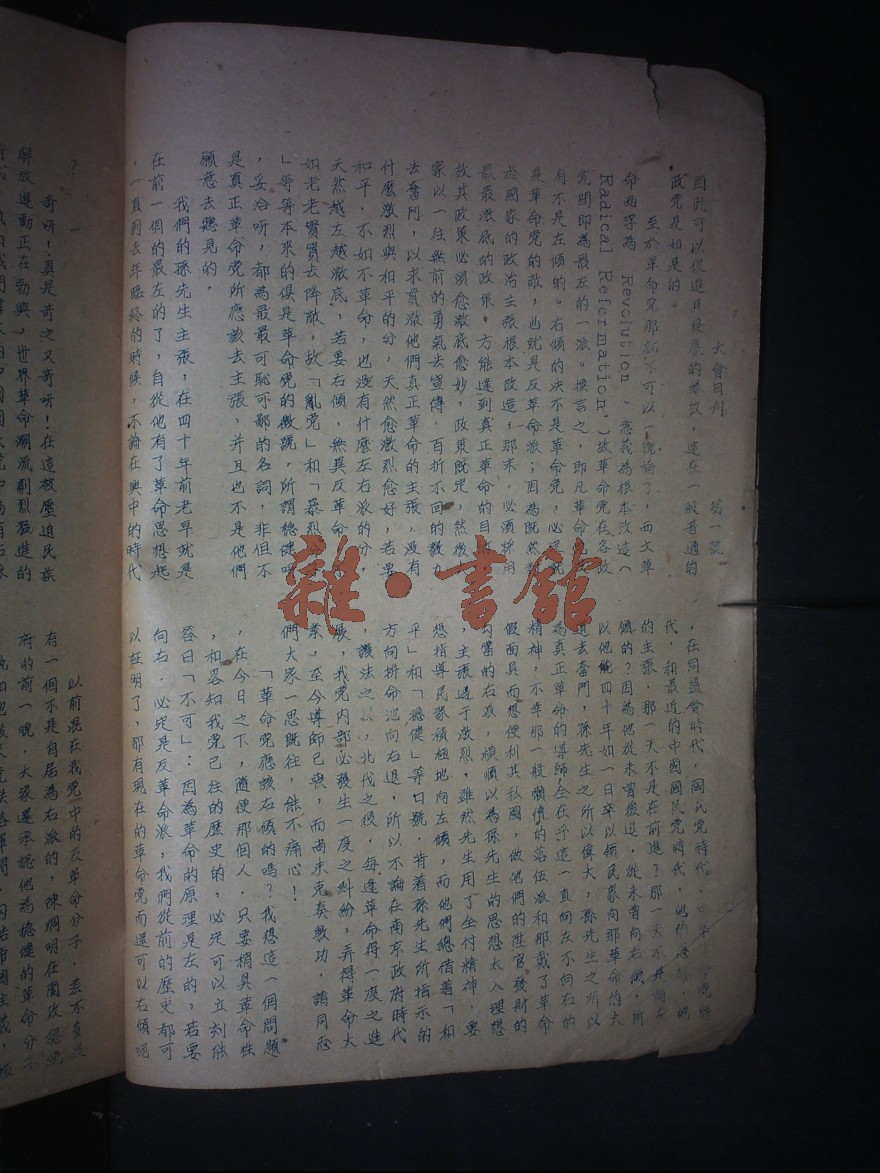 大會日刊 第一號
因此可以促進其發展的緣故，這在一般普通的
政党是如是的。
至於革命党那就不可以一概論了，西文革
命兩字為 Revolution，意義為根本改造（
Radical Reformation，）故革命党在各政
党間即為最左的一派。換言之，即凡革命党
有不是左傾的。右傾的决不是革命党，必定就
是革命党的敵，也就是反革命派；因為既然
於國家的政治主張根本改造，那末，必須採用
最最澈底的政策，方能達到真正革命的目
故其政策必須愈澈底愈妙，政策既定，然後
家以一往無前的勇氣去宣傳，百折不回的毅力
去奮鬥，以求貫澈他們真正革命的主張，没有
什麽激烈與和平的分，天然愈激烈愈好，若要
和平，不如不革命，也没有什麽左右派的分，
天然越左越澈底，若要右傾，無異反革命，
如老老實實去降敵，故「亂党」和「暴烈分
」等等本來的俱是革命党的徽號，所謂穩健呀
，妥洽呀，都為最最可恥可鄙的名詞，非但不
是真正革命党所應該去主張，并且也不是他們
願意去聽見的，
我們的孫先生主張，在四十年前老早就是
在前一個的最左的了，自從他有了革命思想起
，一直到去年臨終的時候，不論在興中的時代
，在同盟會時代，國民党時代，中華革命党時
代，和最近的中國國民党時代，他所 的
的主張，那一天不是在前進？那一天不是向左
傾的？因為他從未嘗後退，從未嘗向右傾，所
以他能四十年如一日卒以領民衆向那革命的大
道去奮鬥，孫先生之所以偉大，孫先生之所以
為真正革命的導師全在乎這一直向左不向右的
精神，不幸那一般懶惰的落伍派和那戴了革命
假面具而想便利其私圖，做他們的陞官發財的
勾當的右派，煩煩以為孫先生的思想太入理想
，主張過于激烈，雖然先生用了全付精神，要
想指導民衆積極地向左傾，而他們總借着「和
平」和「穩健」等口號，背着孫先生所指示的
方向拚命地向右退，所以不論在南京政府時代
，護法之 ，北伐之役，每逢革命得一度之進
展，我党内部必發生一度之糾紛，弄得革命大
業，至今導師已喪，而尚未克奏膚功，請同志
們大家一思既往，能不痛心！
「革命党應該右傾的嗎？我想這一個問題
，在今日之下，隨便那個人，只要稍具革命性
，和畧知我党已往的歷史的，必定可以立刻能
答曰「不可」：因為革命的原理是左的，若要
向右，必定是反革命派，我們從前的歷史都可
以証明了，那有現在的革命党而還可以右傾呢
？
奇呀！真是奇之又奇呀！在這被壓迫民族
解放運動正在勃興，世界革命潮流劇烈發進的
以前混在我党中的反革命分子，差不多是
有一個不是自居為右派的，陳炯明在圍政
府的前一晚，大家還承認他為穩健的革命分子